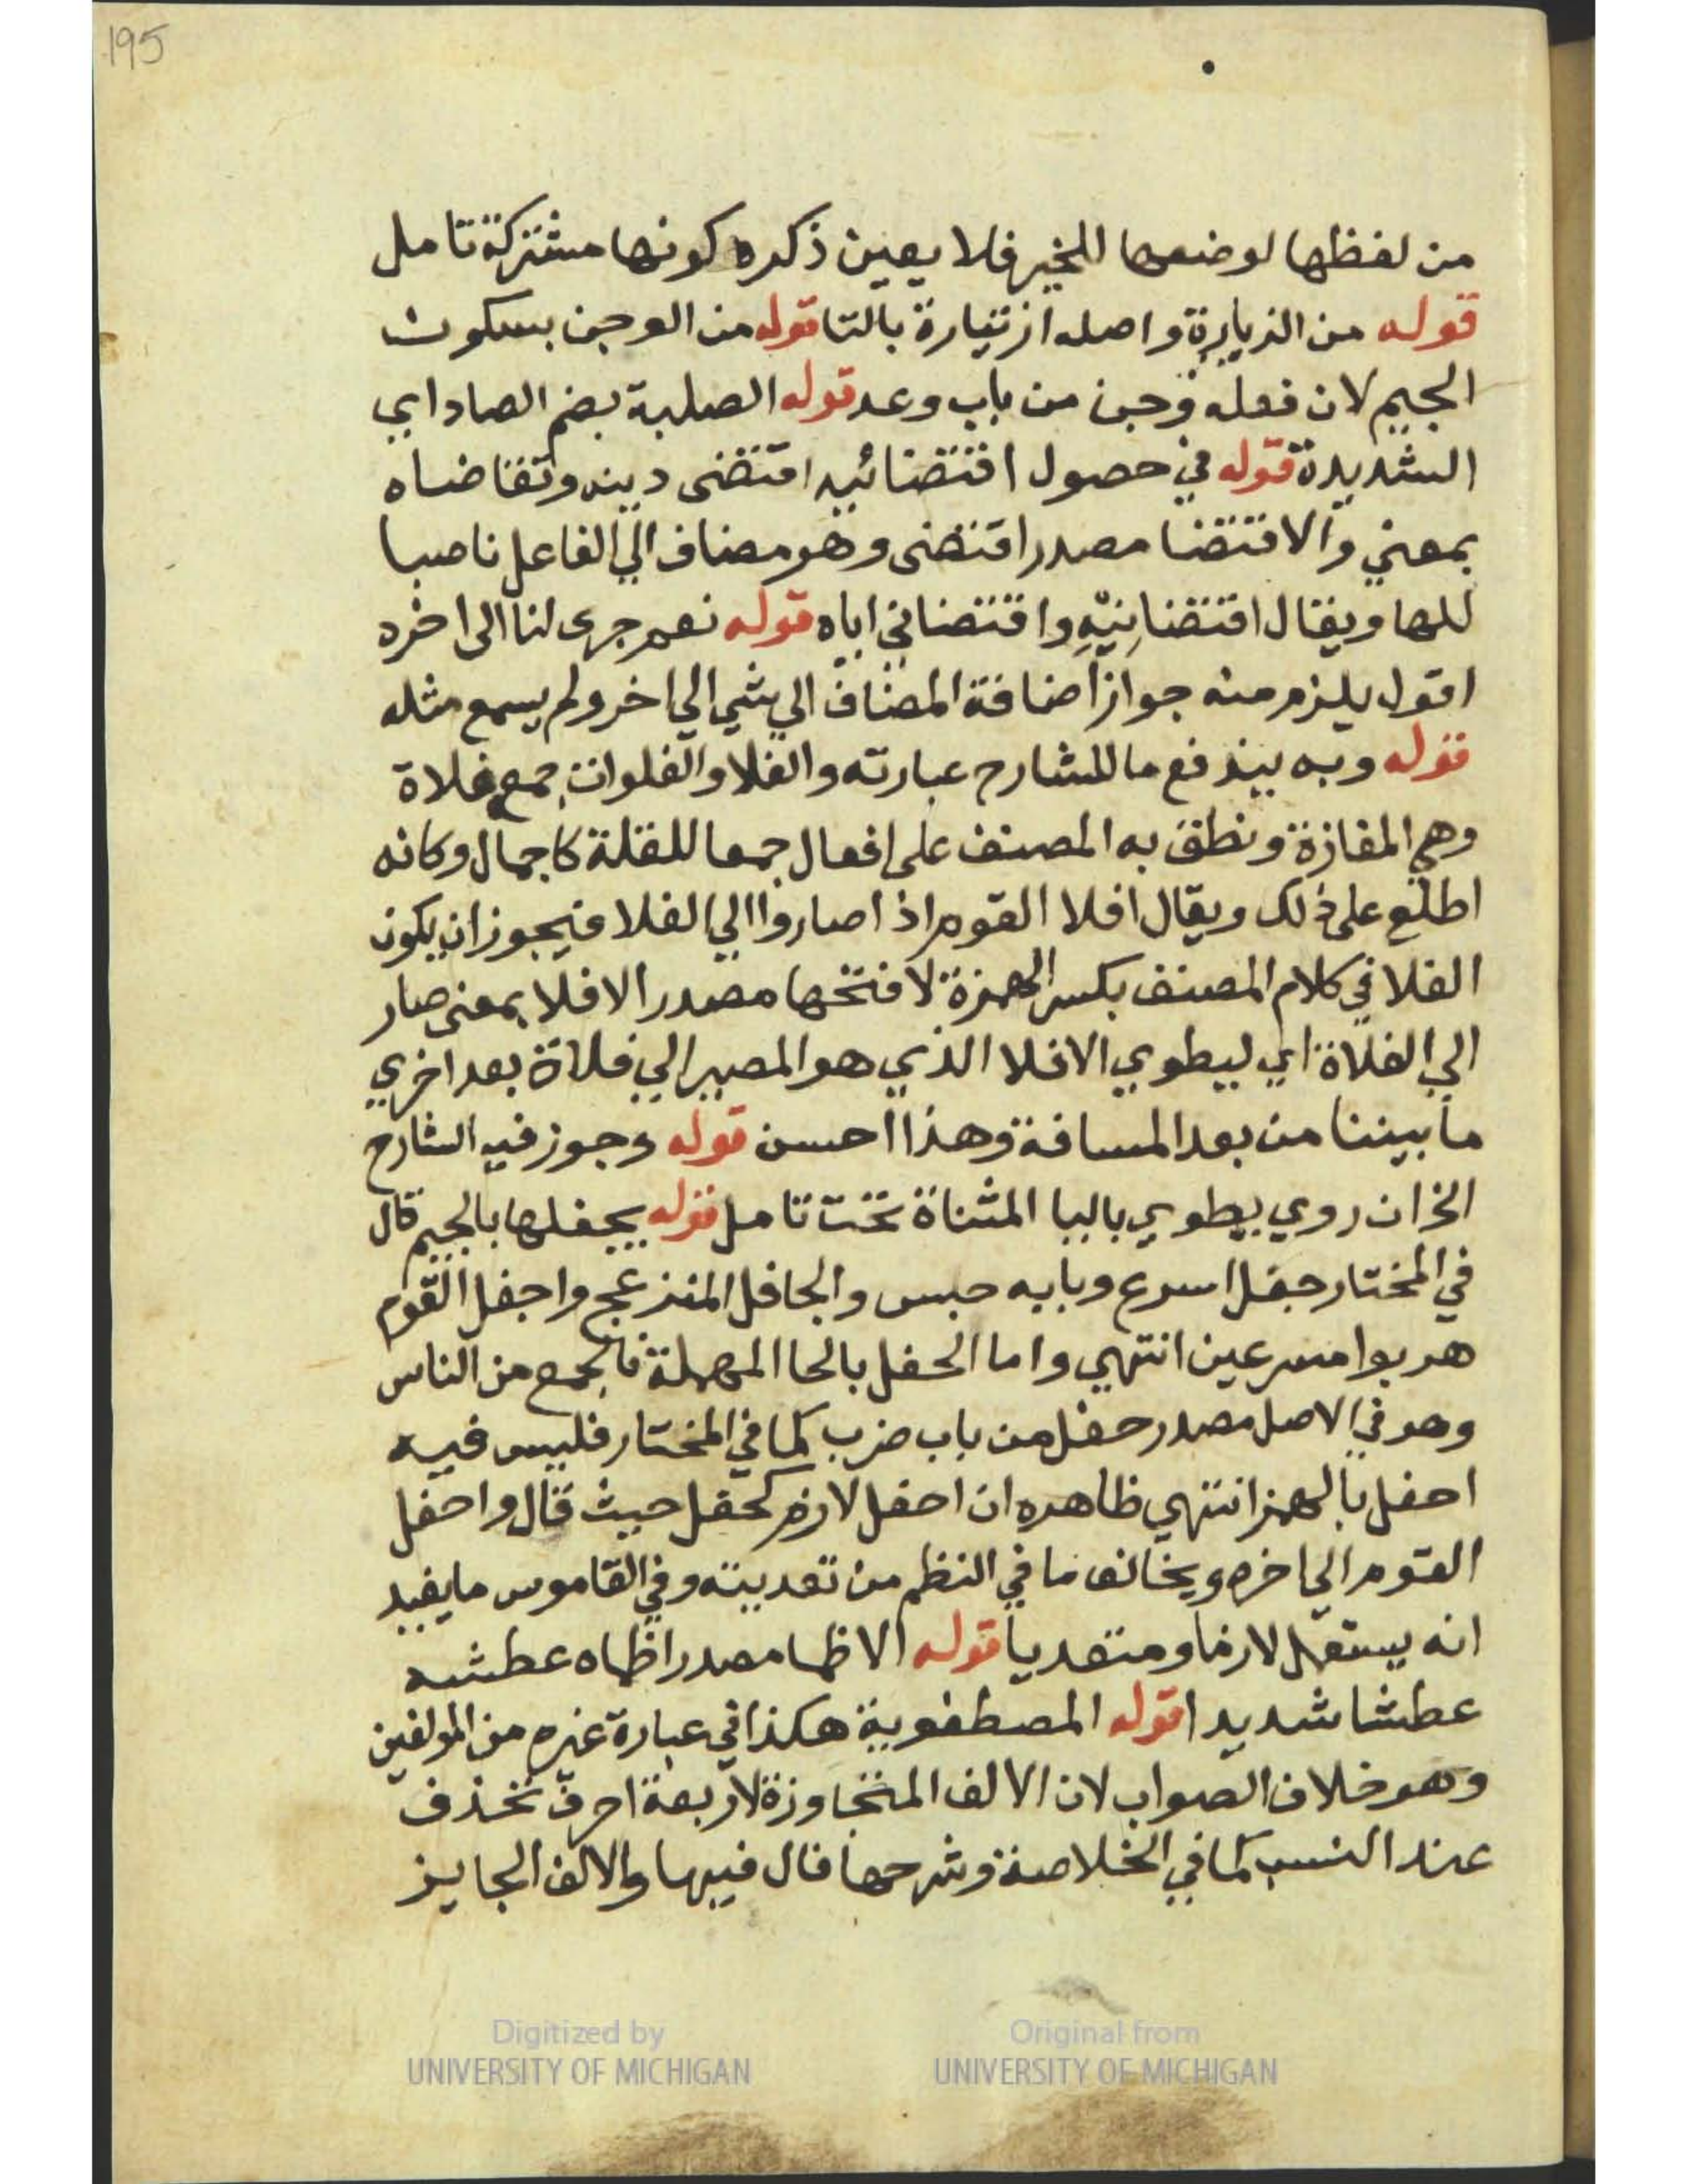 195
من لفظها لوضعها للخير فلا يعين ذكره كونها مشتركة تامل
قوله من الزيارة واصله ازتيارة بالتا قوله من الوجن بسكون
الجيم لان فعله وجن من باب وعد قوله الصلبة بضم الصاد اي
الشديدة قوله في حصول اقتضائيه اقتضى دينه وتقاضاه
بمعني والاقتضا مصدر اقتضى وهو مضاف الي الفاعل ناصبا
للها ويقال اقتضانيه واقتضاني اياه قوله نعم جرى لنا الى اخره
اقول يلزم منه جواز اضافة المضاف الي شي الي اخر ولم يسمع مثله
قوله وبه يندفع ما للشارح عبارته والفلا والفلوات جمع فلاة
وهي المفازة ونطق به المصنف على افعال جمعا للقلة كاجمال وكانه
اطلع على ذلك ويقال افلا القوم اذ اصاروا الي الفلا فيجوز ان يكون
الفلا في كلام المصنف بكسر الهمزة لا فتحها مصدر الافلا بمعنى صار
الي الفلاة اي ليطوي الافلا الذي هو المصير الي فلاة بعد اخري
ما بيننا من بعد المسافة وهذا احسن قوله وجوز فيه الشارح
الخ ان روي يطوي باليا المثناة تحت تامل قوله يجفلها بالجيم قال
في المختار جفل اسرع وبابه حبس والجافل المنزعج واجفل القوم
هربوا مسرعين انتهي واما الحفل بالحا المهملة فالجمع من الناس
وهو في الاصل مصدر حفل من باب ضرب كما في المختار فليس فيه
احفل بالهمز انتهي ظاهره ان احفل لازم كحفل حيث قال واحفل
القوم الي اخره ويخالف ما في النظم من تعديته وفي القاموس ما يفيد
انه يستعمل لازما ومتعديا قوله الاظما مصدر اظماه عطشه
عطشا شديدا قوله المصطفوية هكذا في عبارة غيره من المولفين
وهو خلاف الصواب لان الالف المتجاوزة لاربعة احرف تحذف
عند النسب كما في الخلاصة وشرحها قال فيها والالف الجايز
Digitized by
UNIVERSITY OF MICHIGAN
Original from
UNIVERSITY OF MICHIGAN